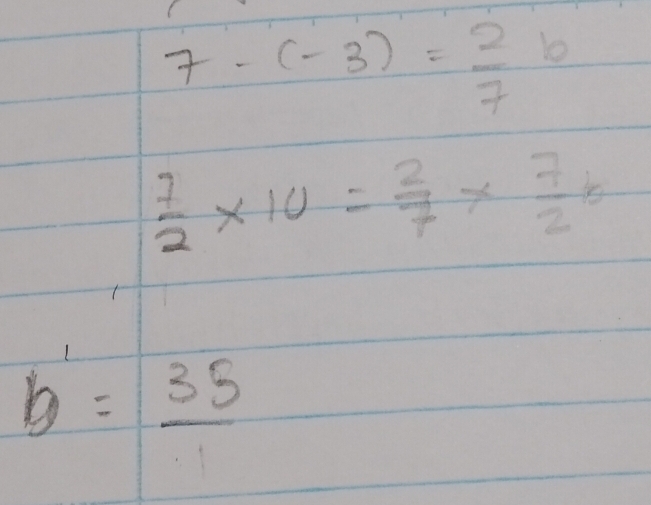 7 - (- 3) = 2/7 b
7/2 × 10 = 2/7 × 7/2 b
b = 35/1